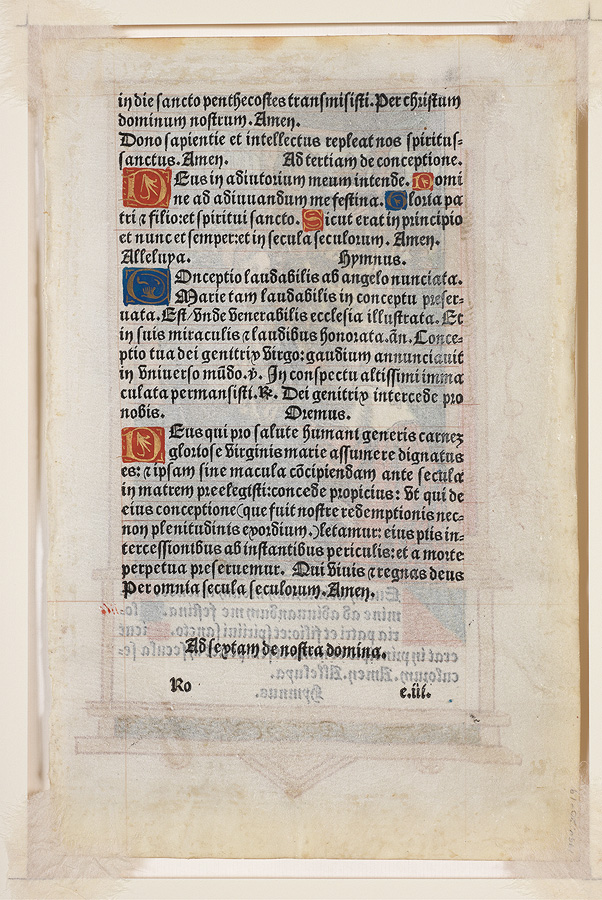 in die sancto penthecostes transmisisti. Per christum
dominum nostrum. Amen.
Dono sapientie et intellectus repleat nos spiritus-
sanctus. Amen. Ad tertiam de conceptione.
DEus in adiutorium meum intende. Domi
ne ad adiuuandum me festina. Gloria pa
tri ⁊ filio: et spiritui sancto. Sicut erat in principio
et nunc et semper: et in secula seculorum. Amen.
Alleluya. Hymnus.
COnceptio laudabilis ab angelo nunciata.
Marie tam laudabilis in conceptu preser-
uata. Est/ vnde venerabilis ecclesia illustrata. Et
in suis miraculis ⁊ laudibus honorata. añ. Conce-
ptio tua dei genitrix virgo: gaudium annunciauit
in vniuerso mūdo. ℣. In conspectu altissimi imma
culata permansisti. ℟. Dei genitrix intercede pro
nobis. Oremus.
DEus qui pro salute humani generis carneꝫ
gloriose virginis marie assumere dignatus
es: ⁊ ipsam sine macula cōcipiendam ante secula
in matrem preelegisti: concede propicius: vt qui de
eius conceptione (que fuit nostre redemptionis nec-
non plenitudinis exordium.) letamur: eius piis in-
tercessionibus ab instantibus periculis: et a morte
perpetua preseruemur. Qui viuis ⁊ regnas deus
Per omnia secula seculorum. Amen.
Ad sextam de nostra domina.
Ro e.iii.